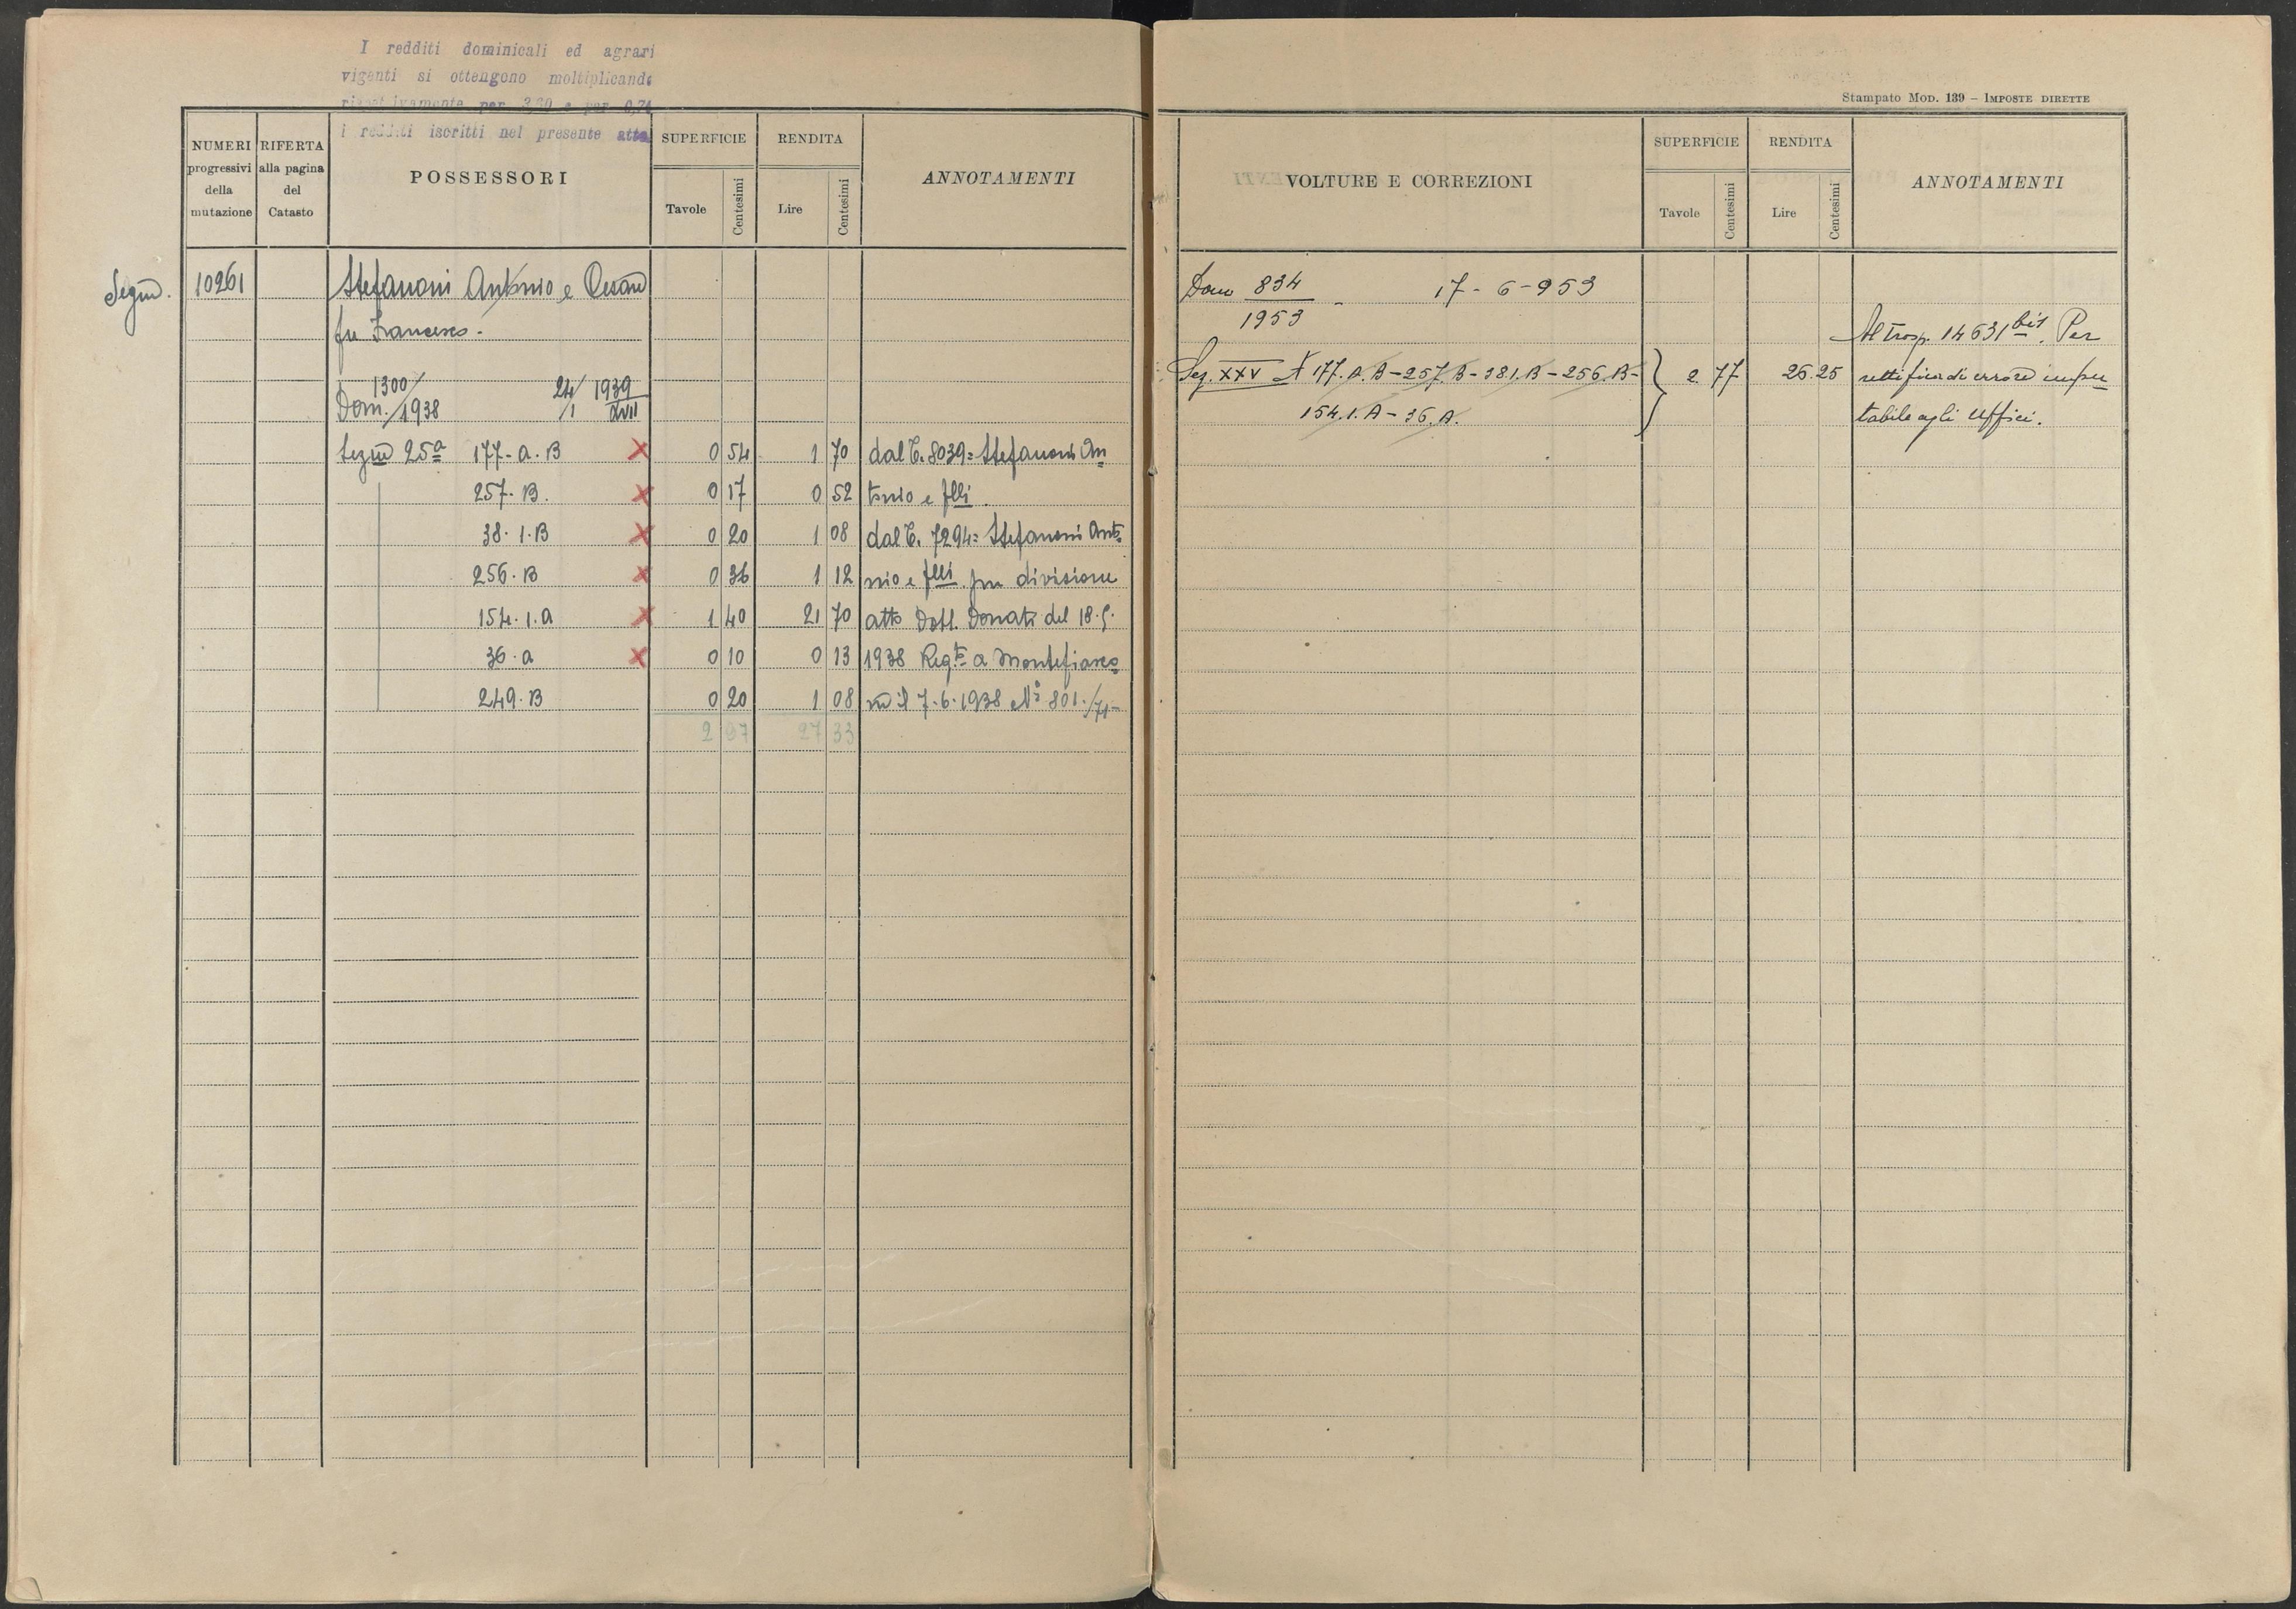 I redditi dominicali ed agrari
vigenti si ottengono moltiplicando
rispettivamente per 3,20 e per 0,74
i redditi iscritti nel presente atto
NUMERI progressivi della mutazione
RIFERTA alla pagina del Catasto
POSSESSORI
SUPERFICIE
Tavole Centesimi
RENDITA
Lire Centesimi
ANNOTAMENTI
Segue. 10261 Stefanoni Antonio e Cesare
fu Francesco.
Dom. 1300/1938 24/1 1939 XVII
Segue 25ª 177-a.B X 0 54 1 70 dal C. 8039= Stefanoni An
257.B. X 0 17 0 52 tonio e flli.
38.1.B X 0 20 1 08 dal C. 7294= Stefanoni Anto
256.B X 0 36 1 12 nio e flli. per divisione
154.1.a X 1 40 21 70 atto Dott. Donati del 18.5.
36.a X 0 10 0 13 1938 Reg.to a Montefiasco
249.B 0 20 1 08 ne il 7.6.1938 N° 801./71-
2 97 27 33
Stampato MOD. 139 – IMPOSTE DIRETTE
VOLTURE E CORREZIONI
SUPERFICIE
Tavole Centesimi
RENDITA
Lire Centesimi
ANNOTAMENTI
Dom 834/1953 - 17-6-953
Al Trasp. 14631 bis. Per
Sez. XXV N 177.A.B-257.B-381.B-256.B- } 2 77 26.25 rettifica di errore impu
154.1.A-36.A. tabile agli Uffici.